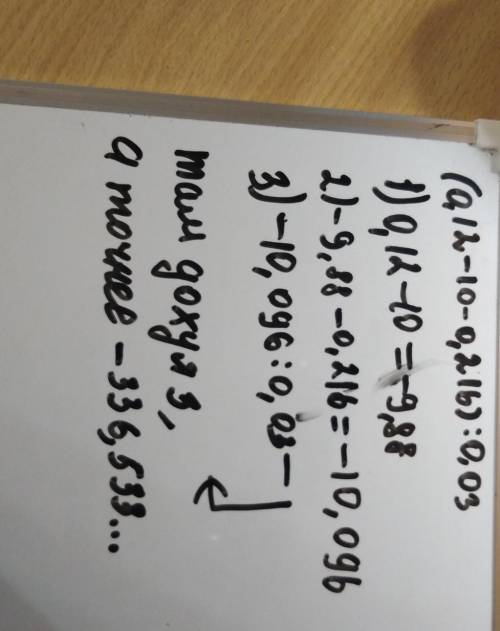 (0,12-10-0,216):0,03
1) 0,12-10=-9,88
2) -9,88-0,216=-10,096
3) -10,096:0,03-
там дохуя 3,
а точнее -336,533...